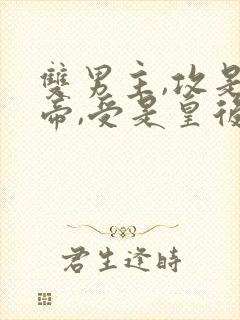 雙男主,攻是
帝,受是皇後
君生逢時